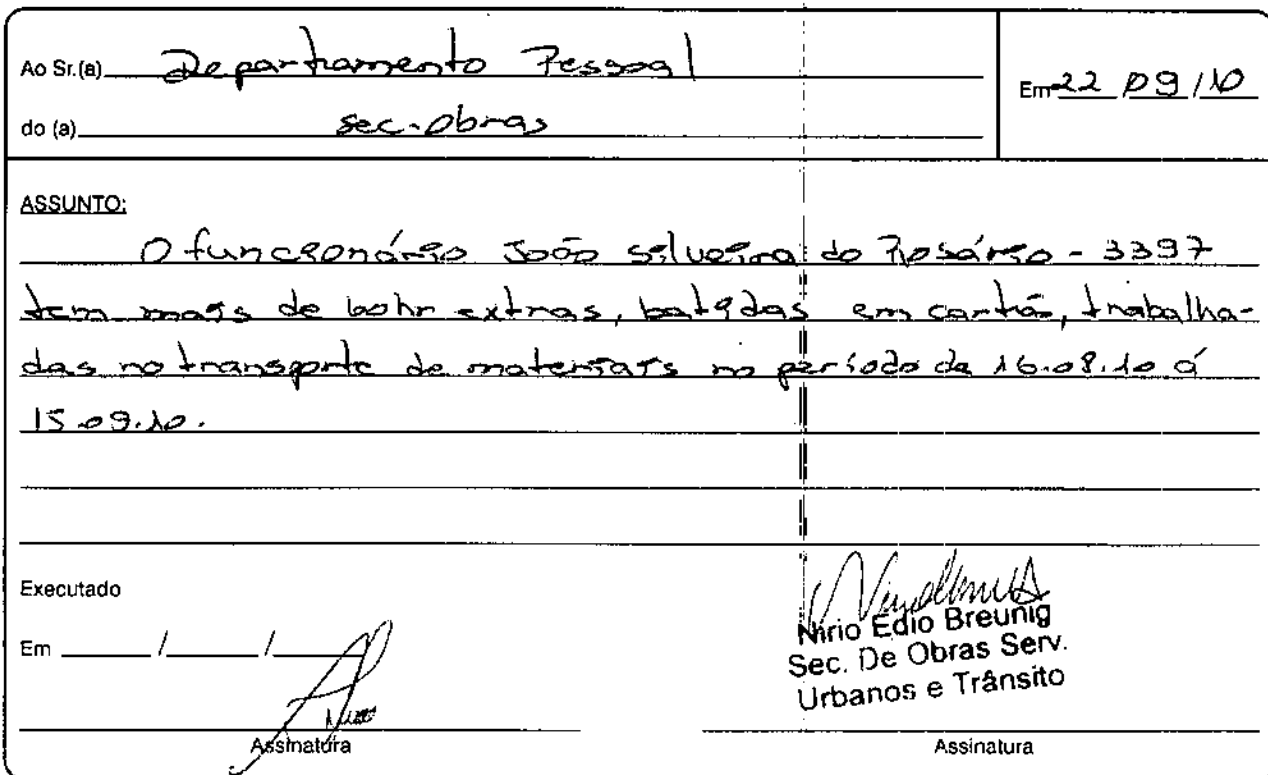 Ao Sr.(a) Departamento Pessoal
Em 22 / 09 / 10
do (a) sec. obras
ASSUNTO:
O funcionário João Silveira do Rosário - 3397
tem mais de 60hr extras, batidas em cartão, trabalha-
das no transporte de materiais no período de 16.08.10 á
15.09.10.
Executado
Em ____ / ____ / ____
Nirio Edio Breunig
Sec. De Obras Serv.
Urbanos e Trânsito
Assinatura
Assinatura